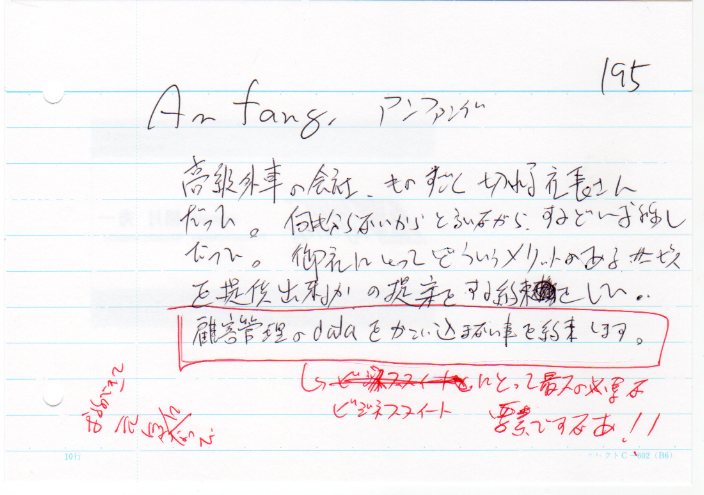 195
Anfang. アンファング
高級外車の会社、ものすごく切れる社長さん
だった。何も分らないからと言いながら、するどいお話し
だった。御社にとってどういうメリットのあるサービス
を提供出来るかの提案をする約束をした。
顧客管理のdataをかこい込まない事を約束します。
ビジネススイートにとって最大の必要な
ビジネススイート 要素ですなあ!!
10行 C-602 (B6)